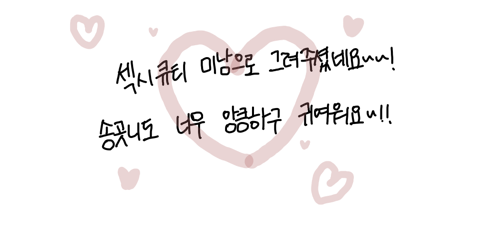 섹시큐티 미남으로 그려주셨네요ㅠㅠ!
송곳니도 너무 앙큼하구 귀여워요ㅠ!!